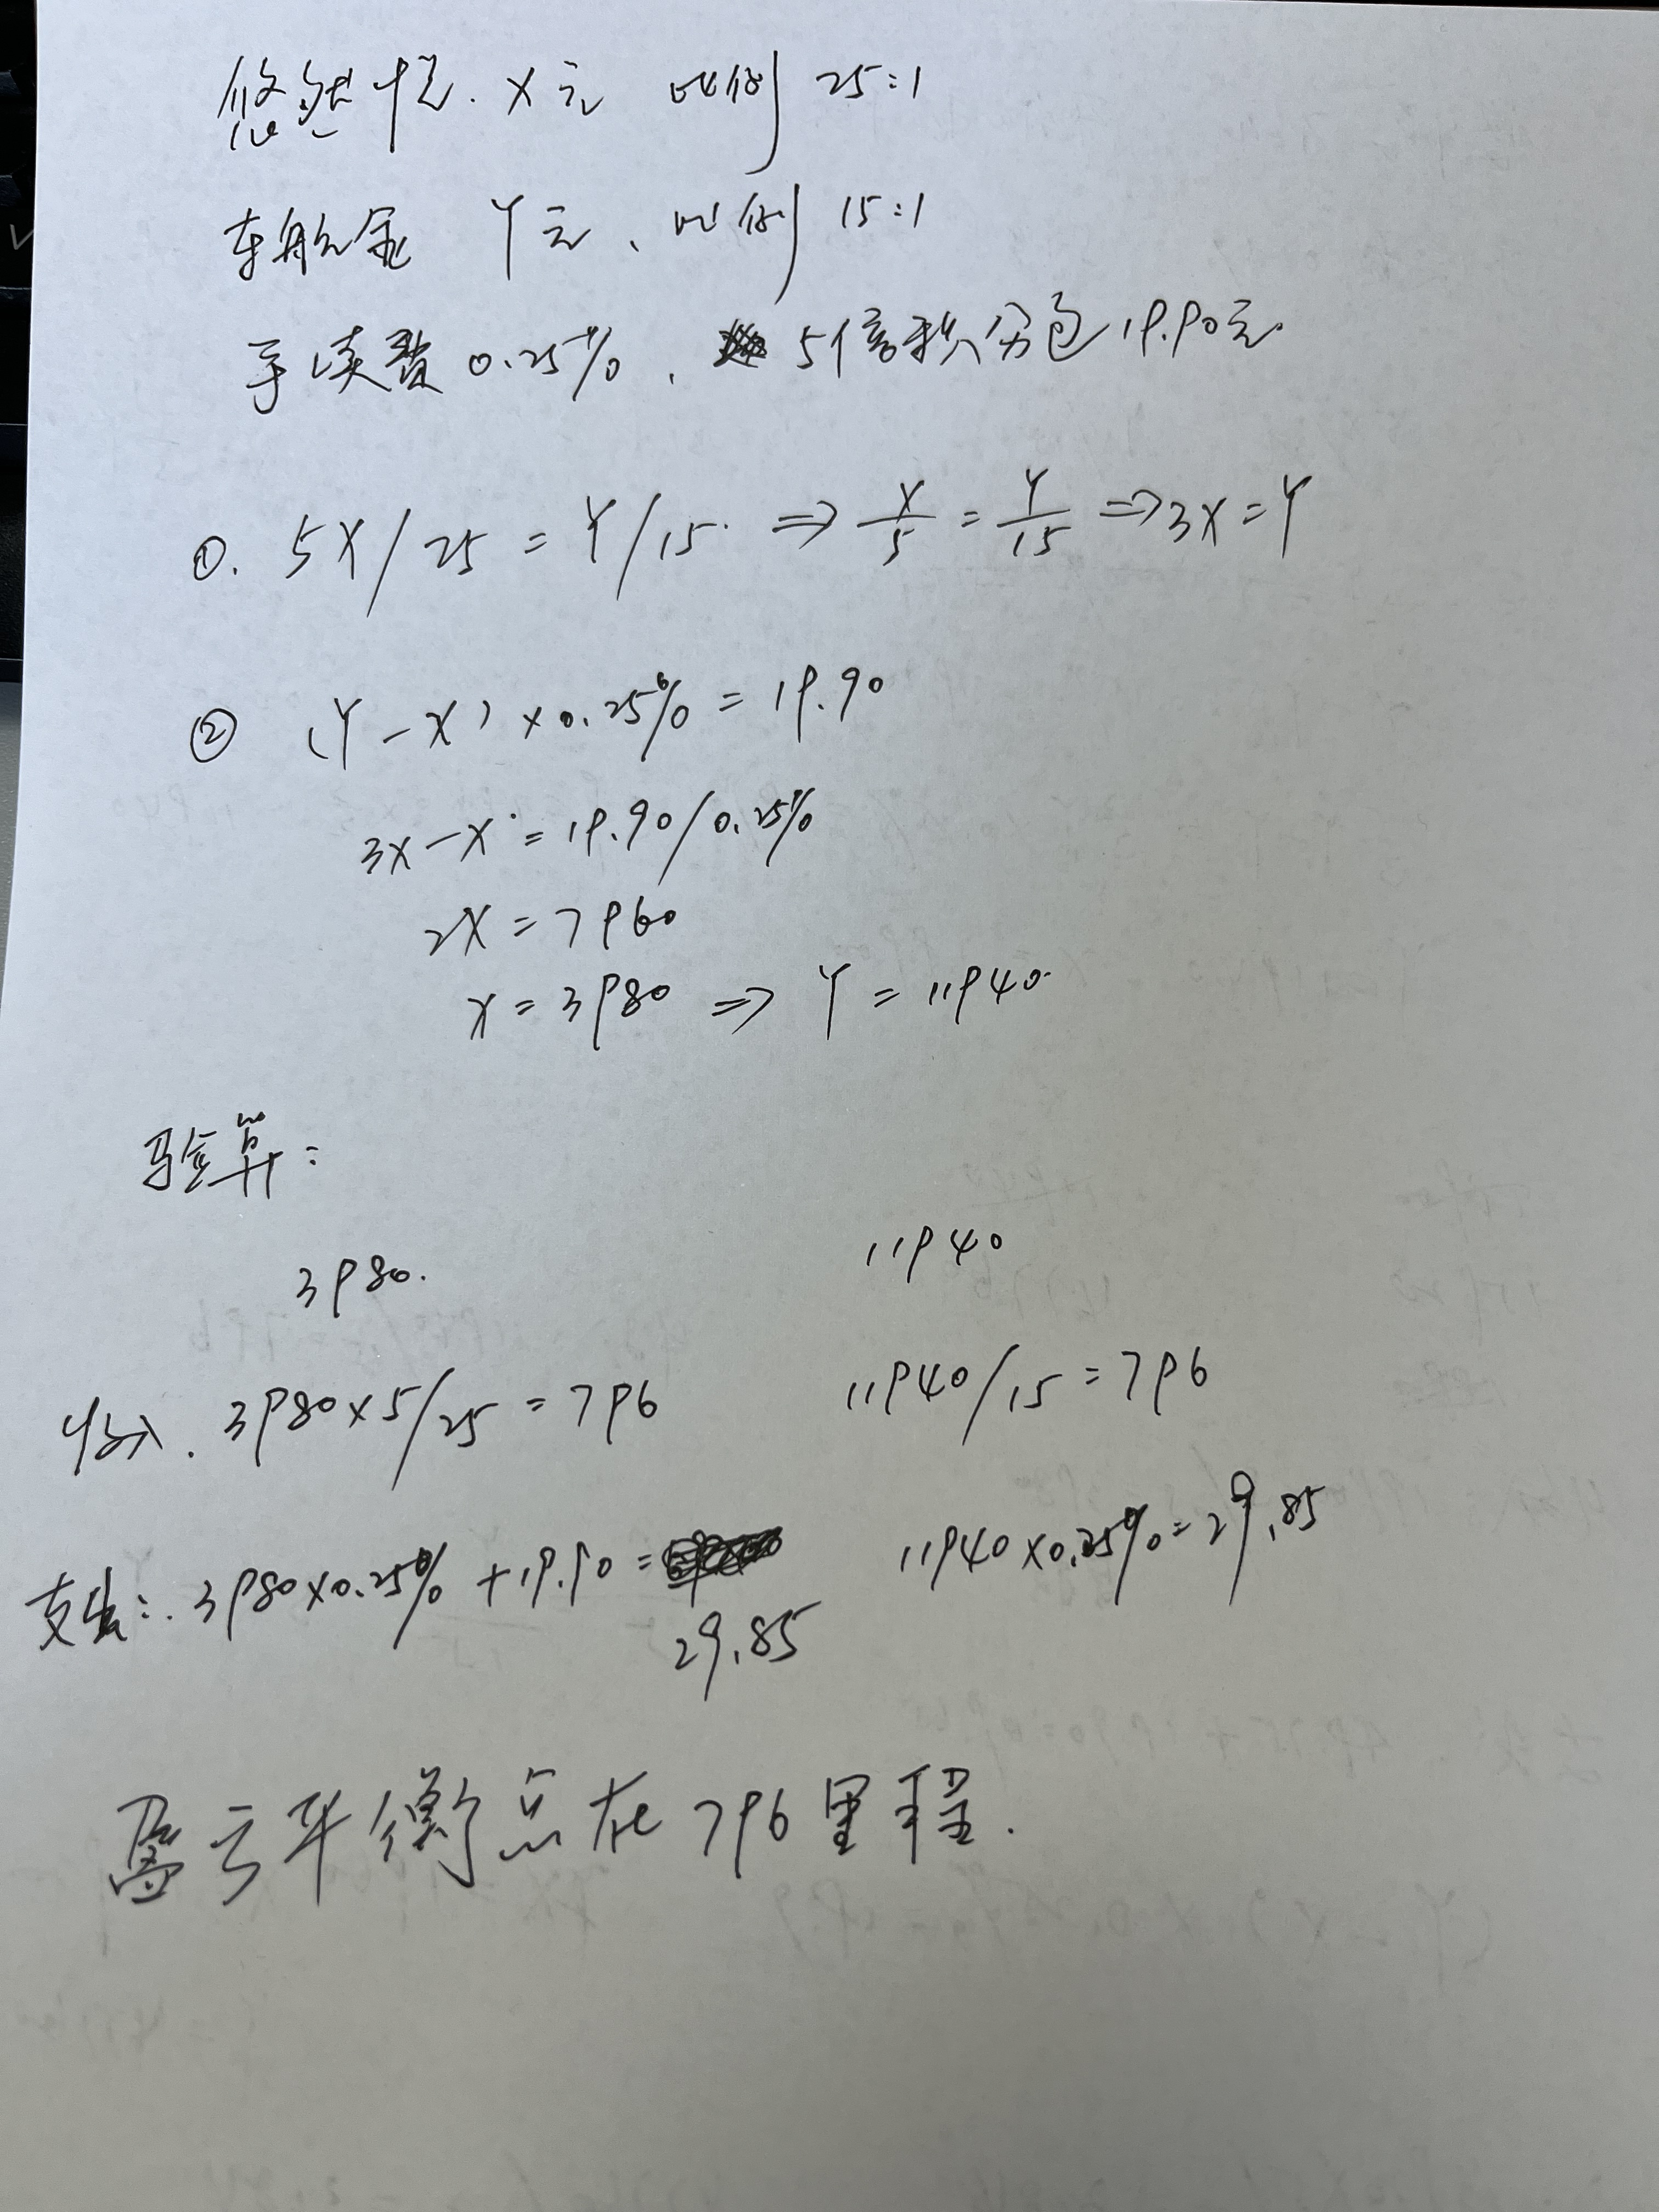 悠然悦. X元 比例 25:1
东航金 Y元、比例 15:1
手续费 0.25%, 5倍积分包 19.90元
①. 5X/25 = Y/15. ⇒ X/5 = Y/15 ⇒ 3X = Y
② (Y-X) × 0.25% = 19.90
3X-X = 19.90/0.25%
2X = 7960
X = 3980 ⇒ Y = 11940
验算:
3980. 11940
收入. 3980×5/25 = 796 11940/15 = 796
支出: 3980×0.25% + 19.90 = 29.85 11940×0.25% = 29.85
盈亏平衡点在 796 里程.